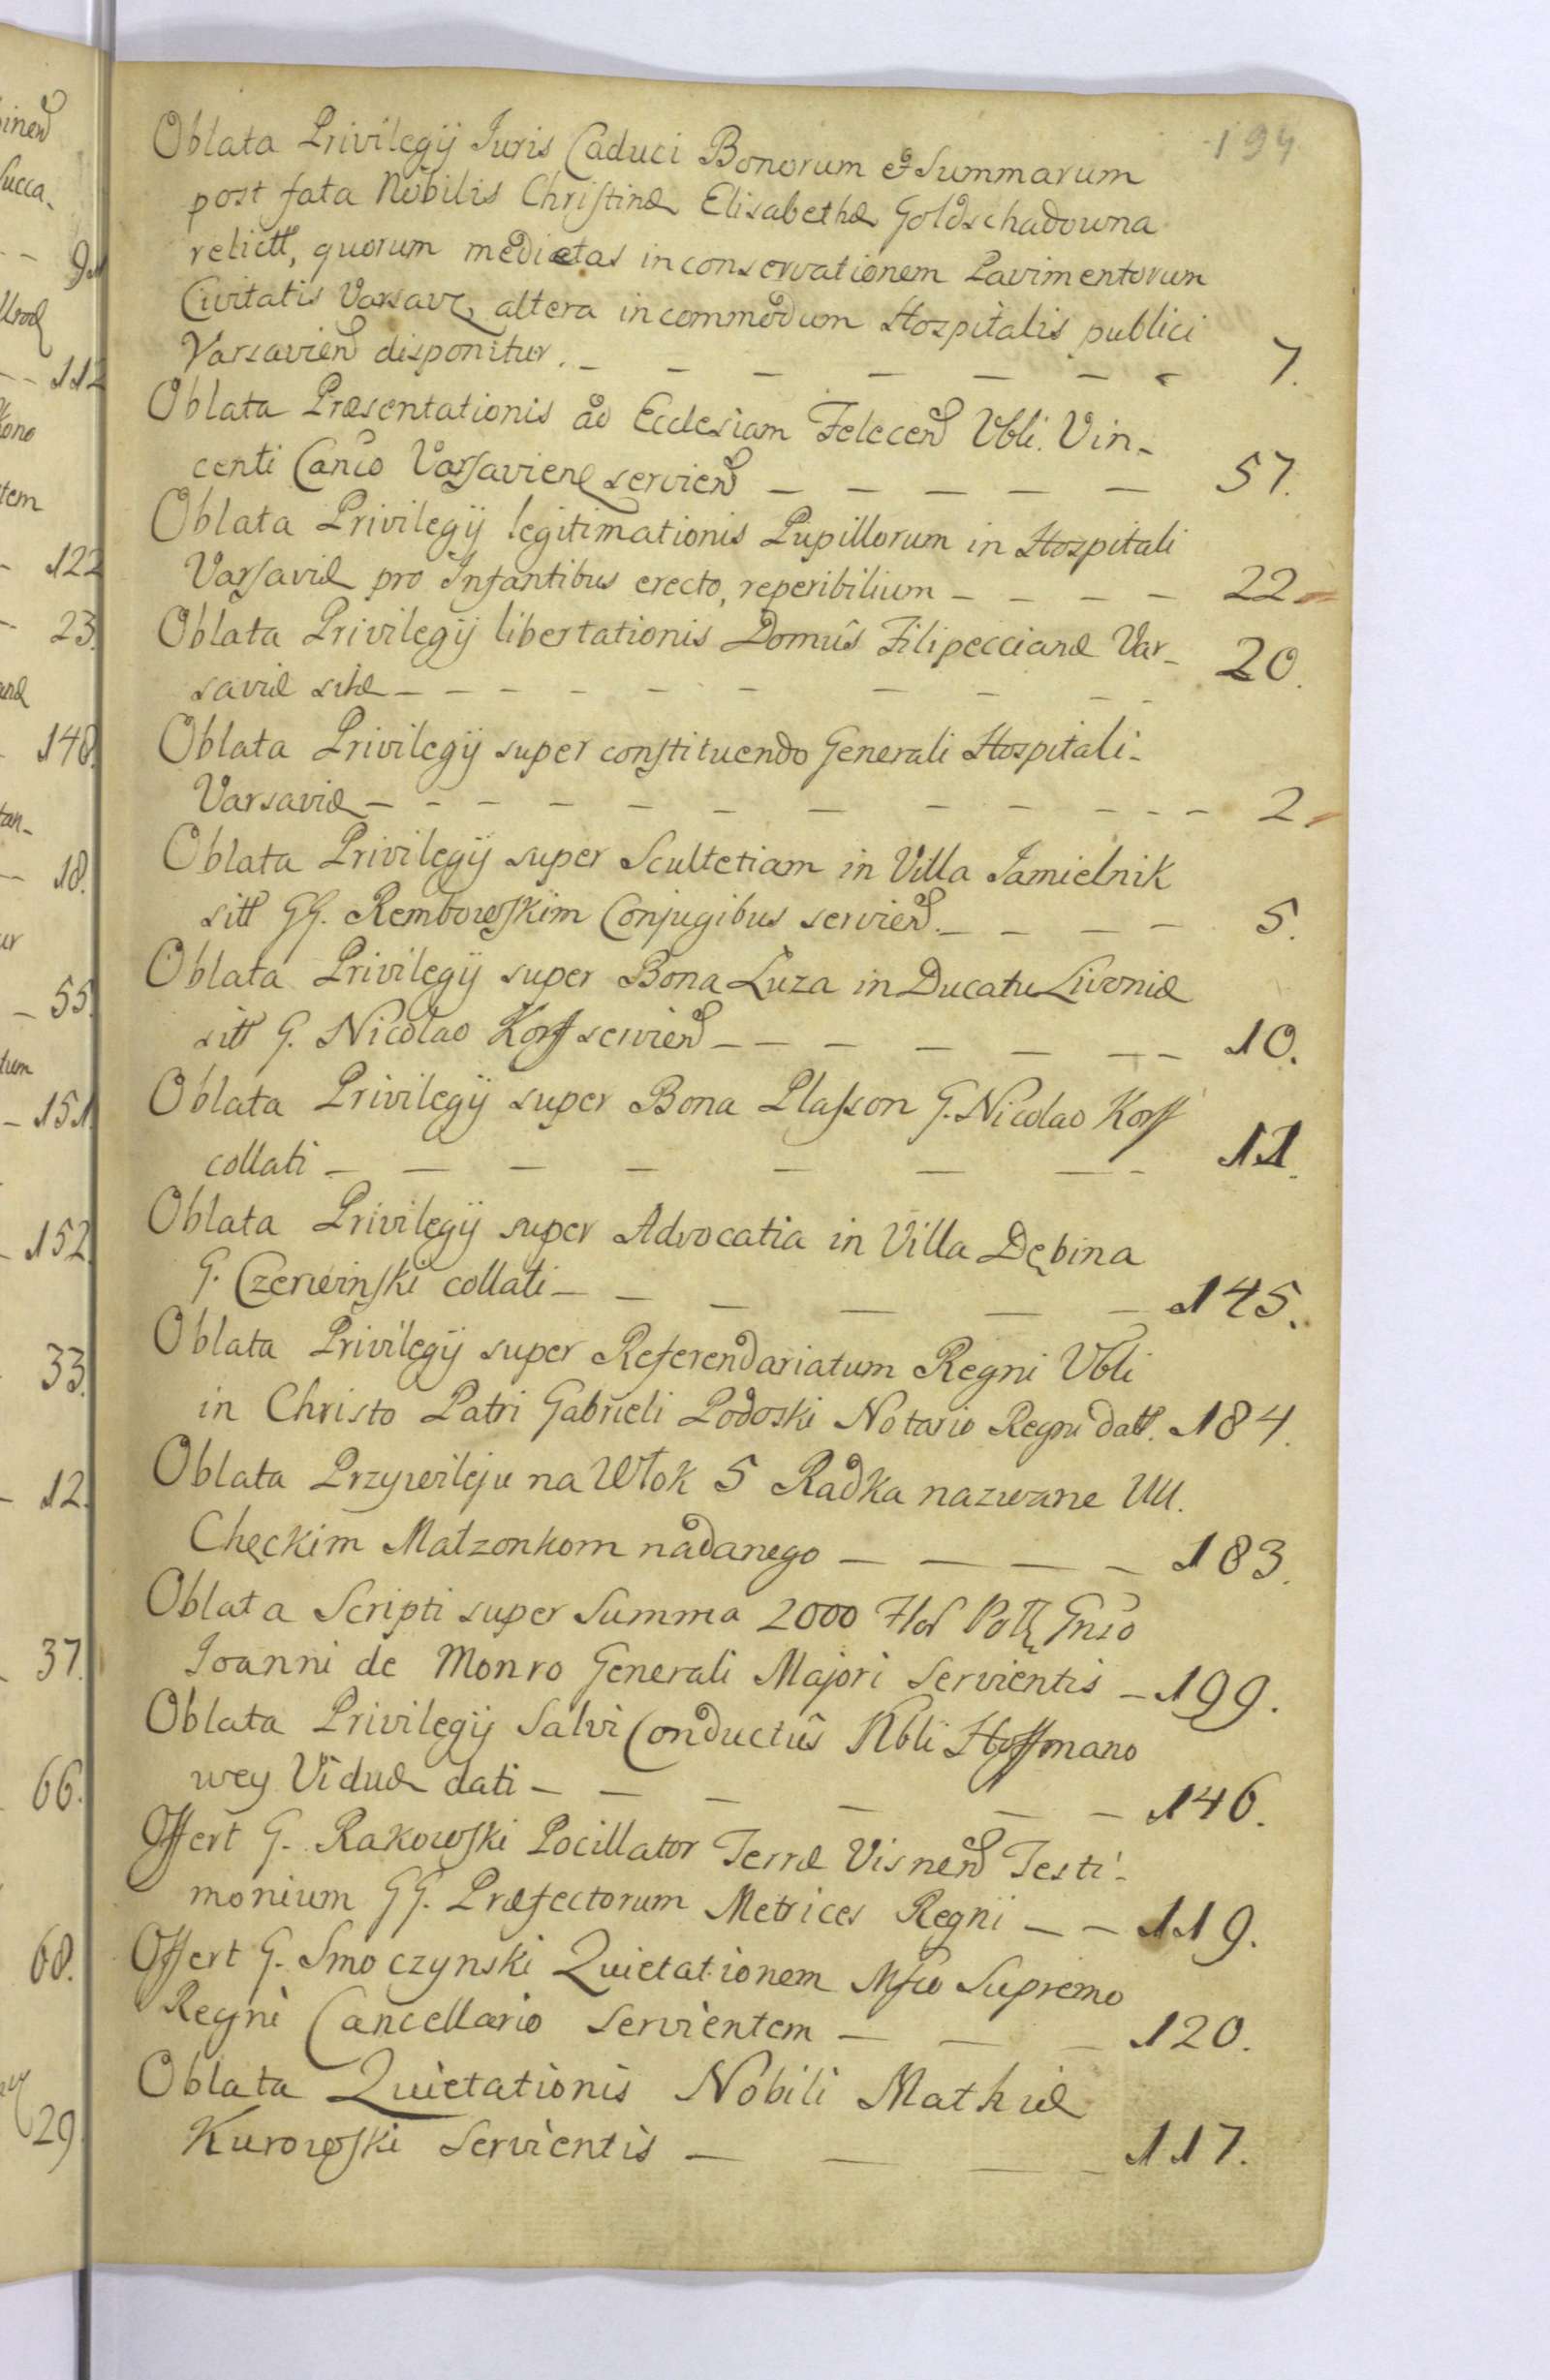 194
Oblata Privilegij Iuris Caduci Bonorum et Summarum
post fata Nobilis Christinæ Elisabethæ Goldschadowna
relict, quorum medietas in conservationem Pavimentorum
Civitatis Varsav, altera in commodum Hospitalis publici
Varsavien disponitur. 7.
Oblata Præsentationis ad Ecclesiam Felecen Vbli. Vin-
centi Canco Varsavien servien 57.
Oblata Privilegij legitimationis Pupillorum in Hospitali
Varsaviæ pro Infantibus erecto, reperibilium 22
Oblata Privilegij libertationis Domûs Filipeccianæ Var-
saviæ sitæ 20.
Oblata Privilegij super constituendo Generali Hospitali
Varsaviæ 2
Oblata Privilegij super Scultetiam in Villa Jamielnik
sitt GG. Rembowskim Conjugibus servien. 5.
Oblata Privilegij super Bona Luza in Ducatu Livoniæ
sitt G. Nicolao Korff servien 10.
Oblata Privilegij super Bona Plasson G. Nicolao Korff
collati 11.
Oblata Privilegij super Advocatia in Villa Dębina
G. Czerwinski collati 145.
Oblata Privilegij super Referendariatum Regni Vbli
in Christo Patri Gabrieli Podoski Notario Regni datt. 184.
Oblata Przywileju na Włok 5 Radka nazwane UU.
Chęckim Małzonkom nadanego 183.
Oblata Scripti super Summa 2000 Flor Poll Gnso
Joanni de Monro Generali Majori Servientis 199.
Oblata Privilegij Salvi Conductûs Nbli Hoffmano
wey Viduæ dati 146.
Offert G. Rakowski Pocillator Terræ Visnen Testi-
monium GG. Præfectorum Metrices Regni 119.
Offert G. Smoczynski Quietationem Mfco Supremo
Regni Cancellario Servientem 120.
Oblata Quietationis Nobili Mathiæ
Kurowski Servientis 117.